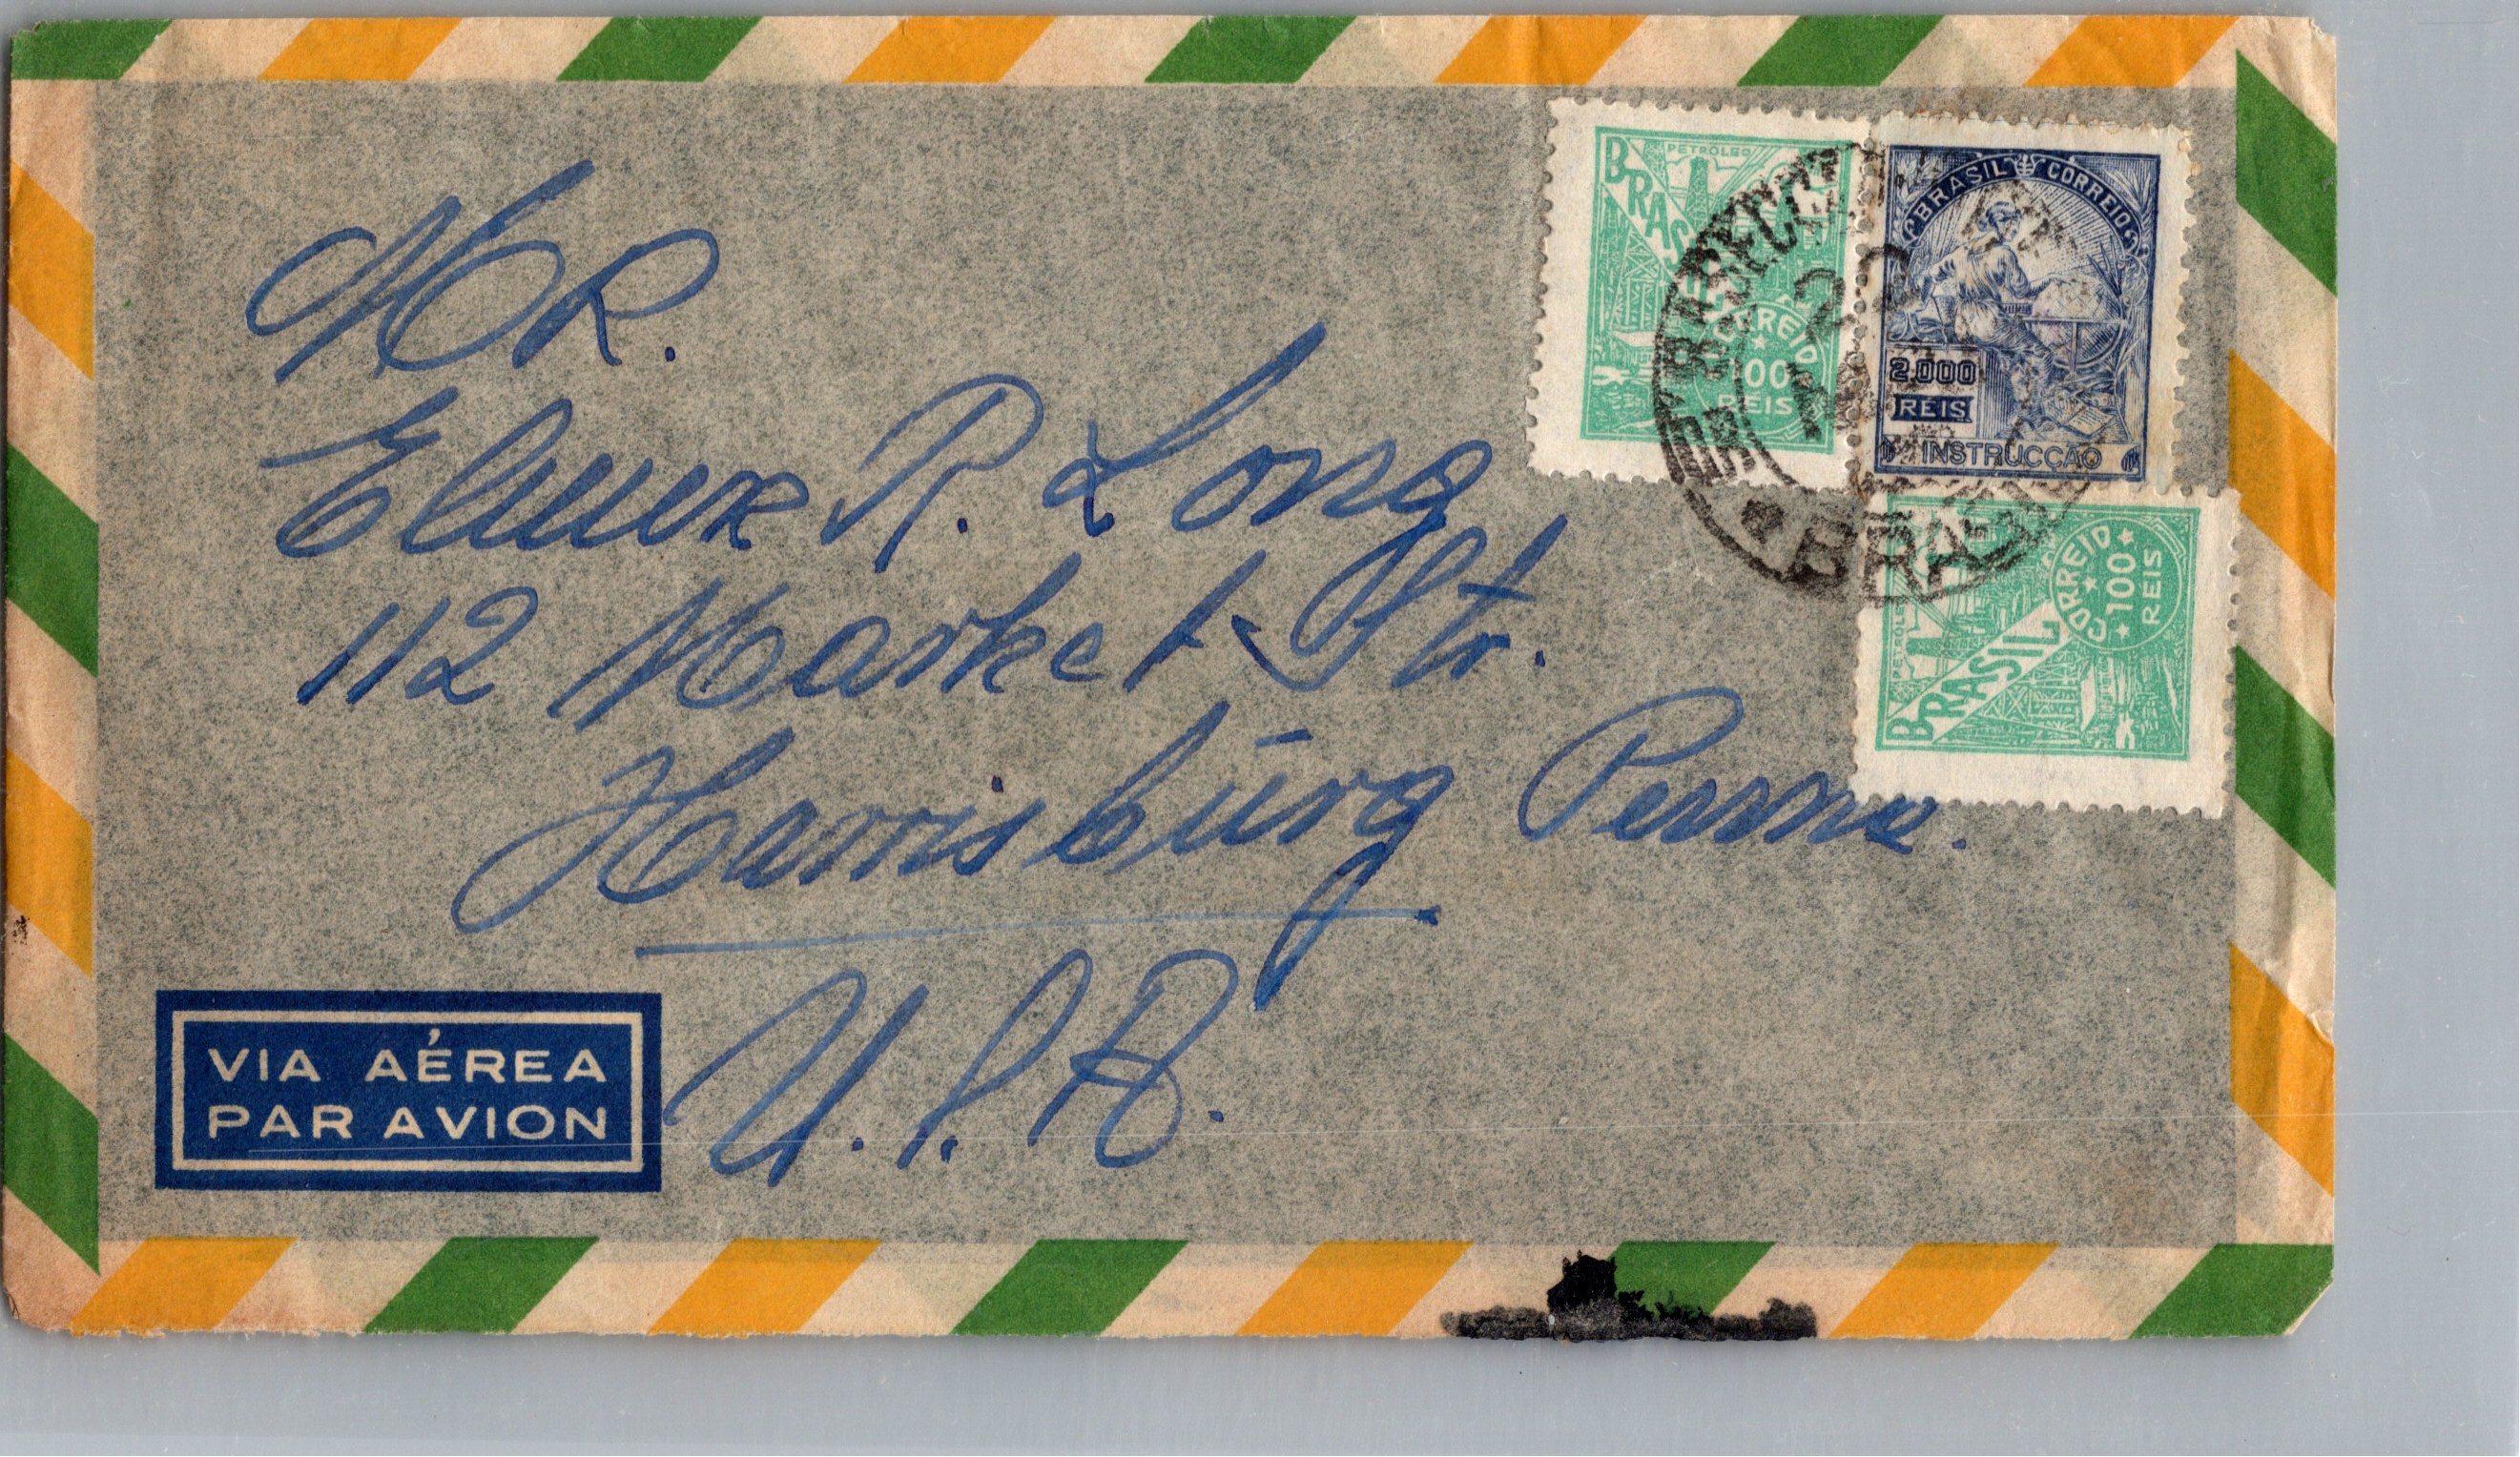 MR.
Elmer R. Long
112 Market Str.
Harrisburg Penna.
U.S.A.
VIA AÉREA
PAR AVION
PETRÓLEO
BRASIL
CORREIO
100
REIS
BRASIL CORREIO
2.000
REIS
INSTRUCÇÃO
PETRÓLEO
BRASIL
CORREIO
100
REIS
22
BRASIL